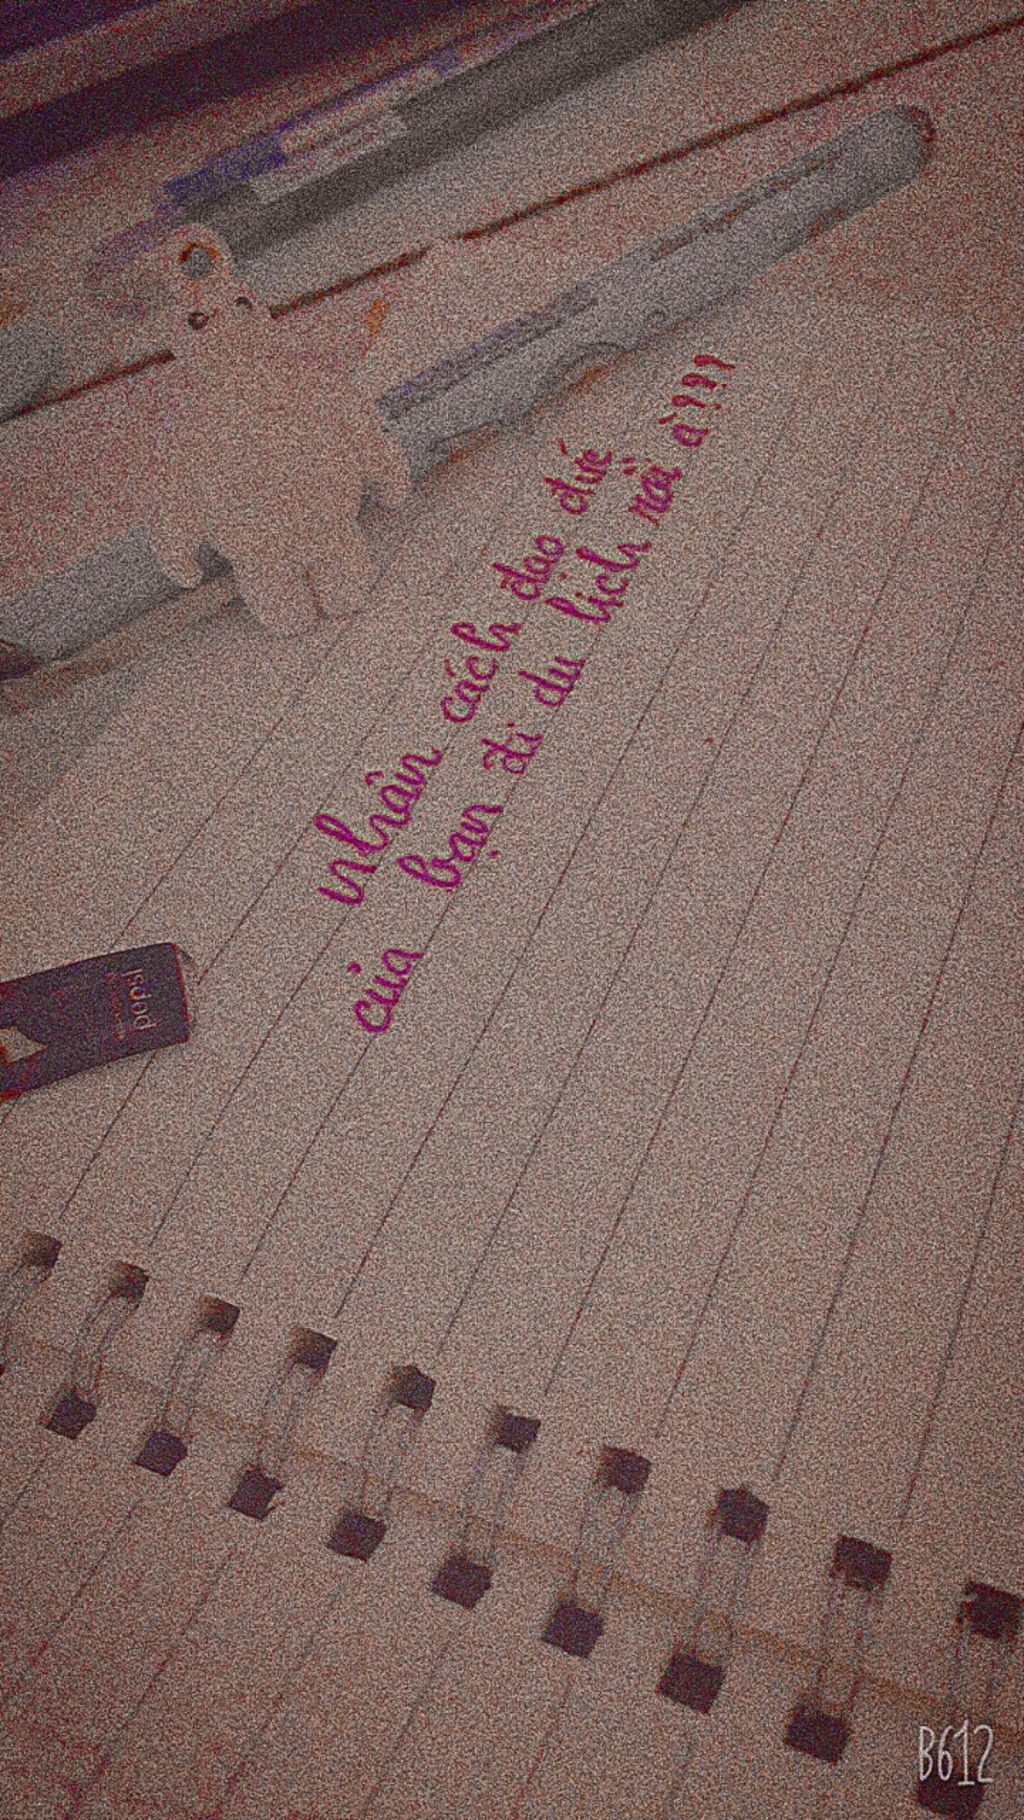 nhân cách đạo đức
của bạn đi du lịch rồi à???
B612